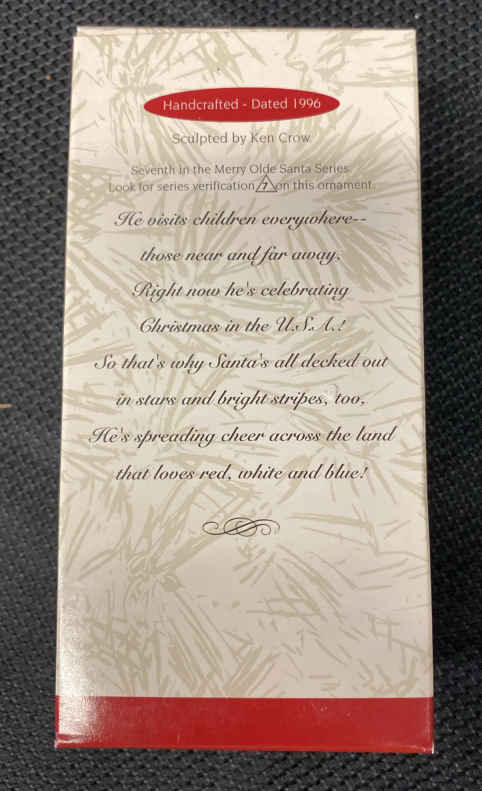 Handcrafted - Dated 1996
Sculpted by Ken Crow
Seventh in the Merry Olde Santa Series.
Look for series verification 7 on this ornament.
He visits children everywhere--
those near and far away,
Right now he's celebrating
Christmas in the U.S.A.!
So that's why Santa's all decked out
in stars and bright stripes, too,
He's spreading cheer across the land
that loves red, white and blue!